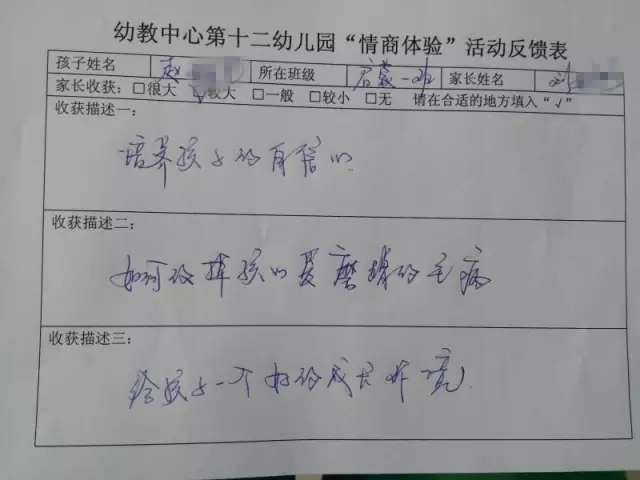 幼教中心第十二幼儿园“情商体验”活动反馈表
孩子姓名 赵 所在班级 启蒙一班 家长姓名 刘
家长收获: □很大 ☑较大 □一般 □较小 □无 请在合适的地方填入“√”
收获描述一:
培养孩子的自信心
收获描述二:
如何改掉孩的爱磨蹭的毛病
收获描述三:
给孩子一个好的成长环境.